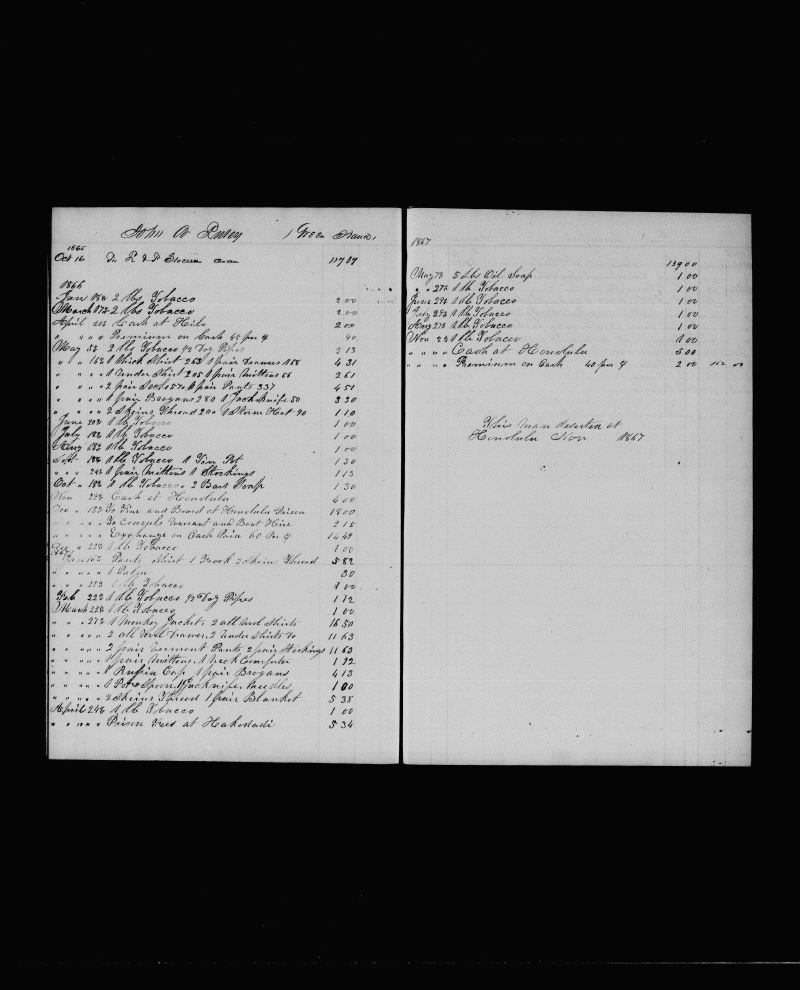 John W 1 Green Hand
1865
Oct 16 To 117 87
1866
Jan 18th 2 lbs Tobacco 2 00
March 17th 2 lbs Tobacco 2 00
April 20th Cash at Hilo 2 00
" " " Premium on Cash 45 per % 90
May 5th 2 lbs Tobacco 1/2 Doz Pipes 2 13
" " 16th 1 Thick Shirt 263 1 pair Drawers 168 4 31
" " " " 1 Under Shirt 205 1 pair Mittens 56 2 61
" " " " 2 pair Socks 1 pair Pants 337 4 51
" " " " 1 pair Brogans 280 1 Jack Knife 50 3 30
" " " " 2 Skeins Thread 20 1 Storm Hat 90 1 10
June 20th 1 lb Tobacco 1 00
July 18th 1 lb Tobacco 1 00
Aug 18th 1 lb Tobacco 1 00
Sept 18th 1 lb Tobacco 1 Tin Pot 1 30
" " " 24th 1 pair Mittens 1 Stockings 1 13
Oct " 18th 1 lb Tobacco 2 Bars Soap 1 30
Nov 29th Cash at Honolulu 4 00
Dec " 13th To Fine and Board at Honolulu Prison 18 00
" " " " To Consuls Warrant and Boat Hire 2 15
" " " " Exchange on Cash Paid 60 Per % 14 49
Dec " 22d 1 lb Tobacco 1 00
1867
Jan 16th Pants Shirt 1 Frock 2 Skeins Thread 5 82
" " " " 1 30
" " 22d 1 lb Tobacco 1 00
Feb 22d 1 lb Tobacco 1/2 Doz Pipes 1 12
March 22d 1 lb Tobacco 1 00
" " 27th 1 Monkey Jacket, 2 all Wool Shirts 16 50
" " " " 2 all Wool Drawers, 2 Under Shirts Do 11 63
" " " " 2 pair Vermont Pants 2 pair Stockings 11 63
" " " " 1 pair Mittens, 1 Neck Comforter 1 12
" " " " 1 Russia Cap 1 pair Brogans 4 13
" " " " 1 Pot 1 Spoon, 1 Jacknife, Needles 1 00
" " " " 2 Skeins Thread 1 pair Blanket 5 38
April 24th 1 lb Tobacco 1 00
" " " " Prison Fees at Hakodadi 5 34
1867
139 00
May 7th 5 Lbs Oil Soap 1 00
" " 27th 1 lb Tobacco 1 00
June 29th 1 lb Tobacco 1 00
July 27th 1 lb Tobacco 1 00
Aug 27th 1 lb Tobacco 1 00
Nov 2d 1 lb Tobacco 1 00
" " " " Cash at Honolulu 5 00
" " " " Premium on Cash 40 per % 2 00 152 00
This Man Deserted at
Honolulu Nov 1867